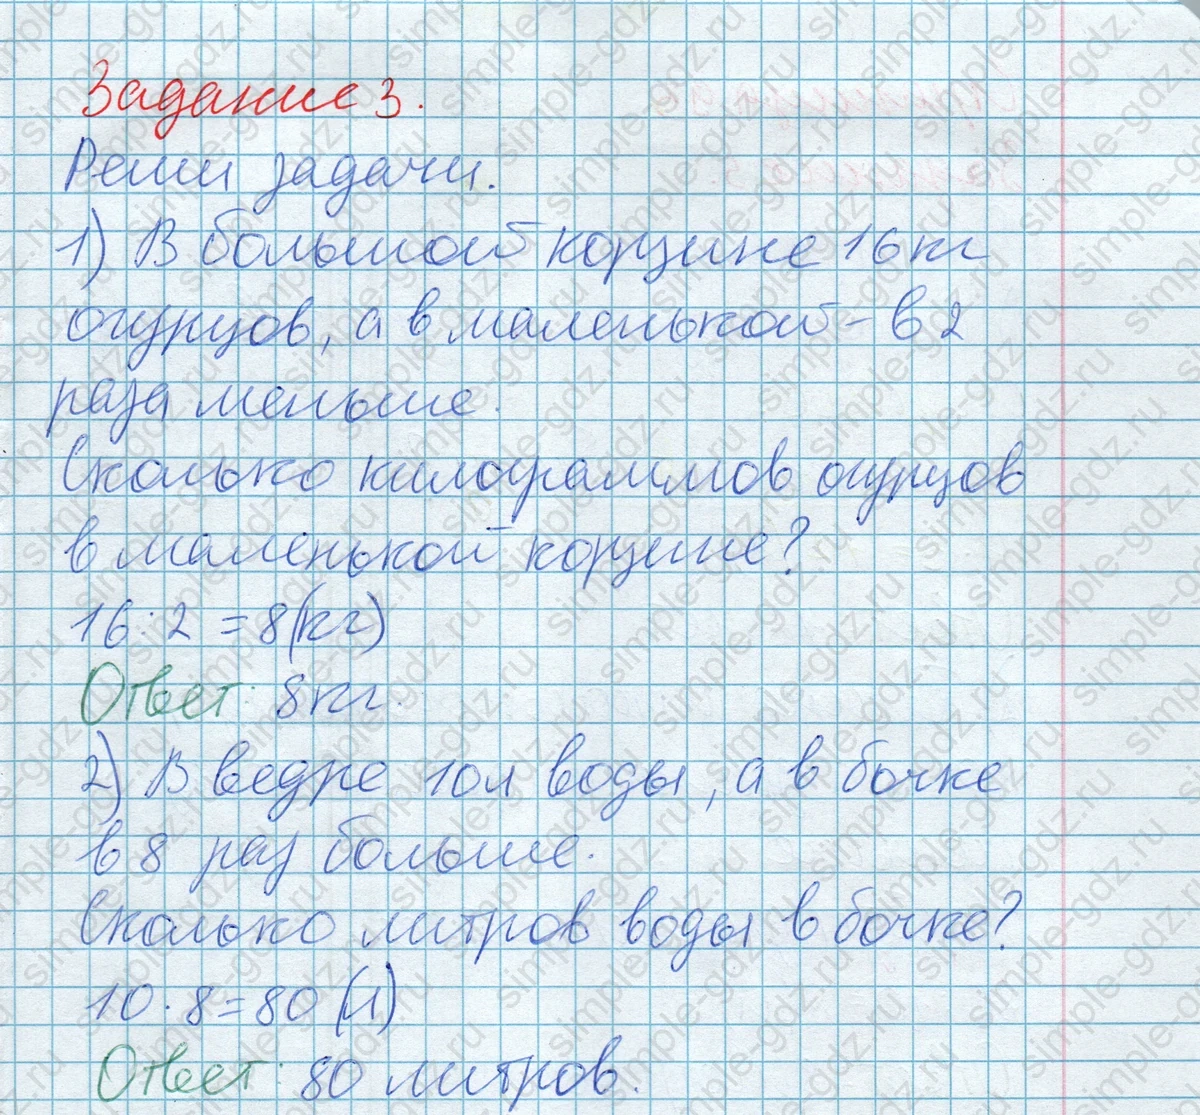 Задание 3.
Реши задачи.
1) В большой корзине 16 кг
огурцов, а в маленькой - в 2
раза меньше.
Сколько килограммов огурцов
в маленькой корзине?
16 : 2 = 8 (кг)
Ответ: 8 кг.
2) В ведре 10 л воды, а в бочке
в 8 раз больше.
Сколько литров воды в бочке?
10 · 8 = 80 (л)
Ответ: 80 литров.
simple-gdz.ru